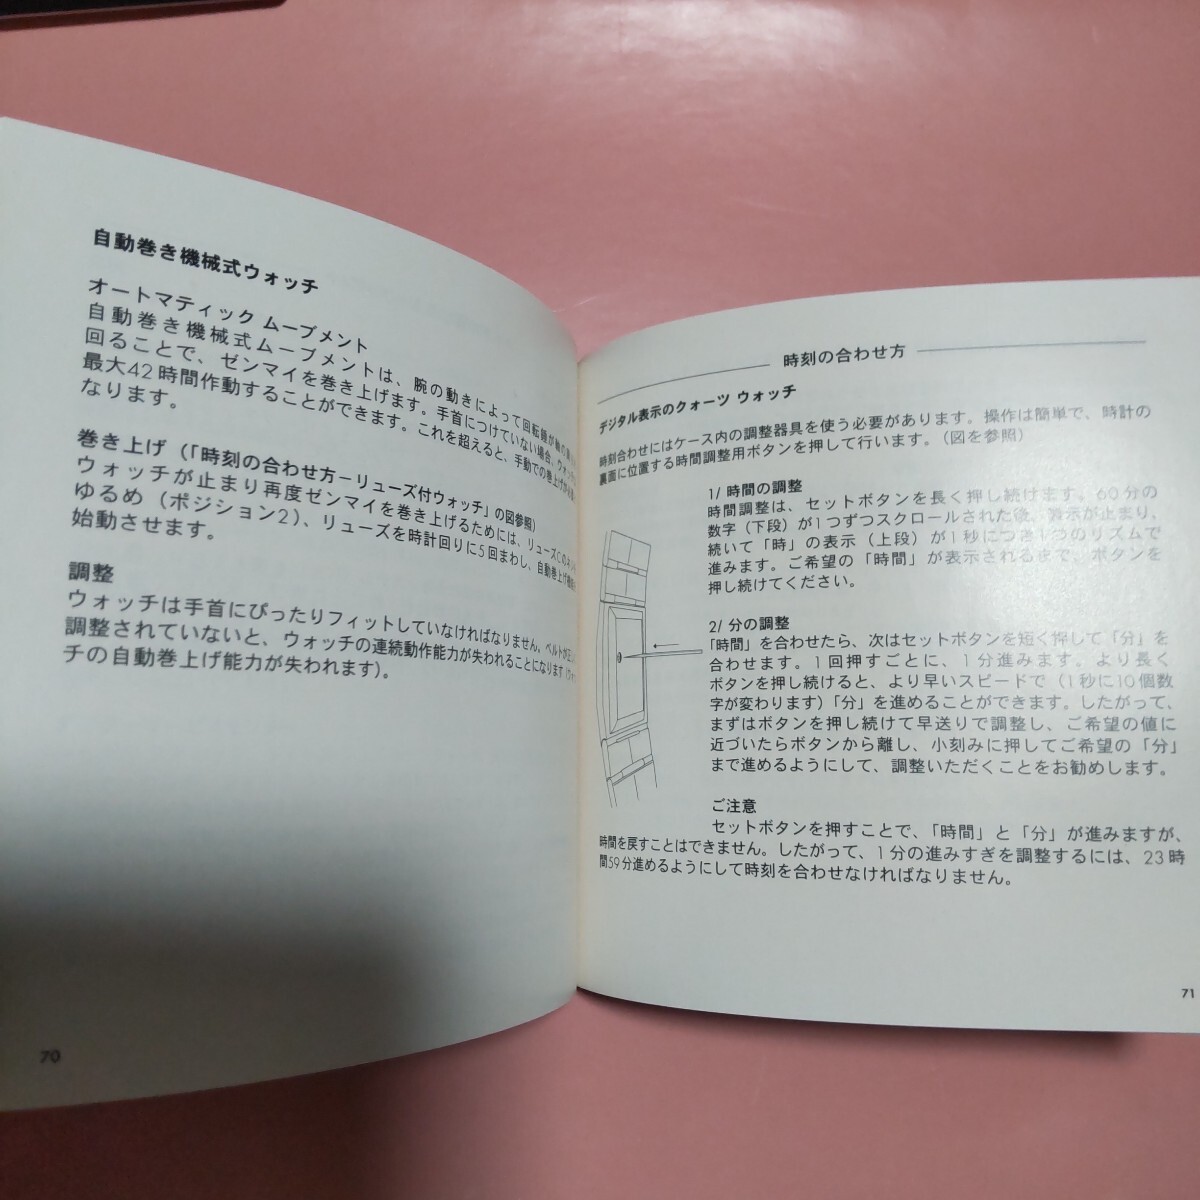 自動巻き機械式ウォッチ
オートマティック ムーブメント
自動巻き機械式ムーブメントは、腕の動きによって回転錘が
回ることで、ゼンマイを巻き上げます。手首につけていない場合、
最大42時間作動することができます。これを超えると、手動での巻上げが
なります。
巻き上げ（「時刻の合わせ方－リューズ付ウォッチ」の図参照）
ウォッチが止まり再度ゼンマイを巻き上げるためには、リューズCの
ゆるめ（ポジション2）、リューズを時計回りに5回まわし、自動巻上げ機能を
始動させます。
調整
ウォッチは手首にぴったりフィットしていなければなりません。ベルトが
調整されていないと、ウォッチの連続動作能力が失われることになります（ウォ
チの自動巻上げ能力が失われます）。
70
時刻の合わせ方
デジタル表示のクォーツ ウォッチ
時刻合わせにはケース内の調整器具を使う必要があります。操作は簡単で、時計の
裏面に位置する時間調整用ボタンを押して行います。（図を参照）
1/ 時間の調整
時間調整は、セットボタンを長く押し続けます。60分の
数字（下段）が1つずつスクロールされた後、表示が止まり、
続いて「時」の表示（上段）が1秒につき1つのリズムで
進みます。ご希望の「時間」が表示されるまで、ボタンを
押し続けてください。
2/ 分の調整
「時間」を合わせたら、次はセットボタンを短く押して「分」を
合わせます。1回押すごとに、1分進みます。より長く
ボタンを押し続けると、より早いスピードで（1秒に10個数
字が変わります）「分」を進めることができます。したがって、
まずはボタンを押し続けて早送りで調整し、ご希望の値に
近づいたらボタンから離し、小刻みに押してご希望の「分」
まで進めるようにして、調整いただくことをお勧めします。
ご注意
セットボタンを押すことで、「時間」と「分」が進みますが、
時間を戻すことはできません。したがって、1分の進みすぎを調整するには、23時
間59分進めるようにして時刻を合わせなければなりません。
71